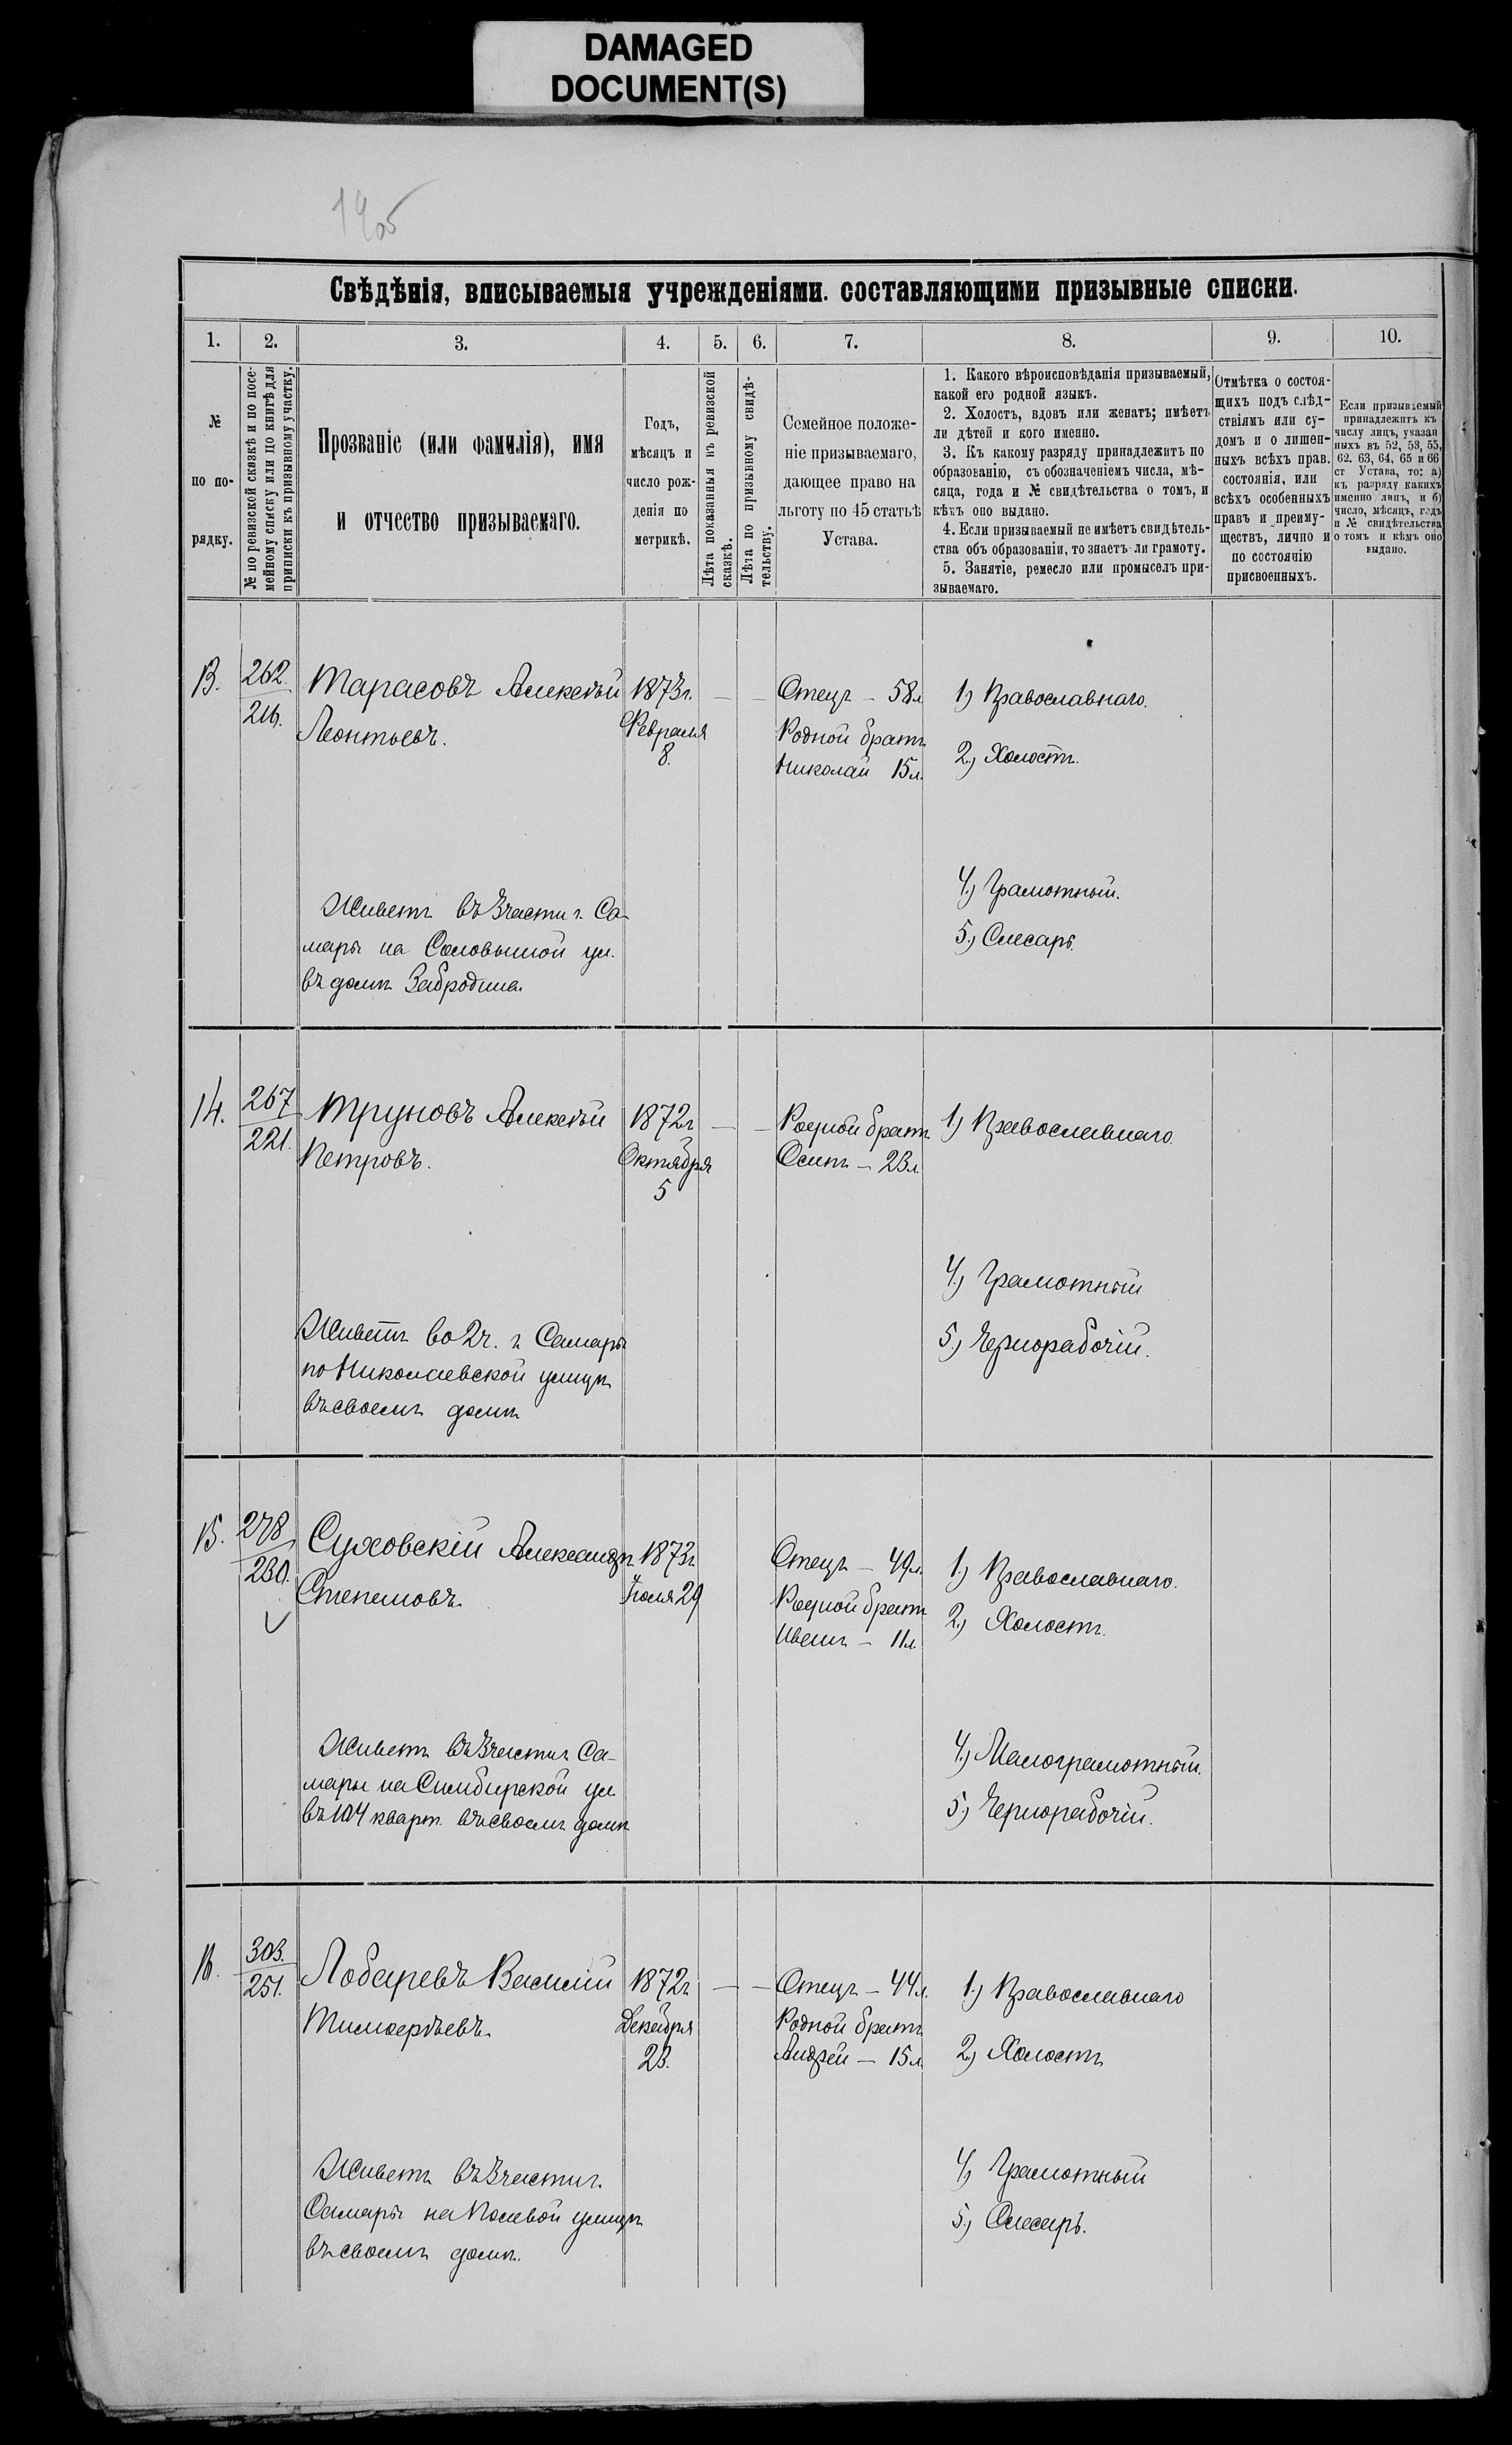 DAMAGED
DOCUMENT(S)
1905
Свѣдѣнія, вписываемыя учрежденіями. составляющими призывные списки.
1. 2. 3. 4. 5. 6. 7. 8. 9. 10.
№
по по-
рядку.
№ по ревизской сказкѣ и по посе-
мейному списку или по книгѣ для
приписки къ призывному участку.
Прозваніе (или фамилія), имя
и отчество призываемаго.
Годъ,
мѣсяцъ и
число рож-
денія по
метрикѣ.
Лѣта показанныя въ ревизской
сказкѣ.
Лѣта по призывному свидѣ-
тельству.
Семейное положе-
ніе призываемаго,
дающее право на
льготу по 45 статьѣ
Устава.
1. Какого вѣроисповѣданія призываемый,
какой его родной языкъ.
2. Холостъ, вдовъ или женатъ; имѣетъ
ли дѣтей и кого именно.
3. Къ какому разряду принадлежитъ по
образованію, съ обозначеніемъ числа, мѣ-
сяца, года и № свидѣтельства о томъ, и
кѣмъ оно выдано.
4. Если призываемый не имѣетъ свидѣтель-
ства объ образованіи, то знаетъ-ли грамоту.
5. Занятіе, ремесло или промыселъ при-
зываемаго.
Отмѣтка о состоя-
щихъ подъ слѣд-
ствіямъ или су-
домъ и о лишен-
ныхъ всѣхъ прав.
состоянія, или
всѣхъ особенныхъ
правъ и преиму-
ществъ, лично и
по состоянію
присвоенныхъ.
Если призываемый
принадлежитъ къ
числу лицъ, указан
ныхъ въ 52, 53, 55,
62. 63, 64, 65 и 66
ст Устава, то: а)
къ разряду какихъ
именно лицъ, и б)
число, мѣсяцъ, годъ
и № свидѣтельства
о томъ и кѣмъ оно
выдано.
13. 262. Тарасовъ Алексѣй 1873г. — — Отецъ — 58л. 1) Православнаго.
216. Леонтьевъ. Февраля Родной братъ
8. Николай 15л. 2) Холостъ.
4.) Грамотный.
Живетъ въ 3 части г. Са-
5.) Слесарь.
мары на Соловьиной ул.
въ домѣ Забродина.
14. 267 Труновъ Алексѣй 1872г — — Родной братъ 1) Православнаго.
221. Петровъ. Октября Осипъ — 23л
5
4.) Грамотный
Живетъ во 2ч. г. Самары 5.) Чернорабочій.
по Николаевской улицѣ
въ своемъ домѣ
15. 278 Суховскій Александръ 1873г. Отецъ — 49л. 1.) Православнаго.
230. Степановъ. Іюля 29 Родной братъ 2.) Холостъ.
Иванъ — 11л.
Живетъ въ 3 части г. Са- 4.) Малограмотный.
мары на Симбирской ул.
въ 104 кварт. въ своемъ домѣ 5.) Чернорабочій.
16. 303. Лобаревъ Василій 1872г. — — Отецъ — 44л. 1.) Православнаго
251. Тимоѳеевъ. Декабря Родной братъ
23. Андрей — 15л. 2.) Холостъ
Живетъ въ 3 части г. 4.) Грамотный
Самары на Полевой улицѣ 5.) Слесарь.
въ своемъ домѣ.